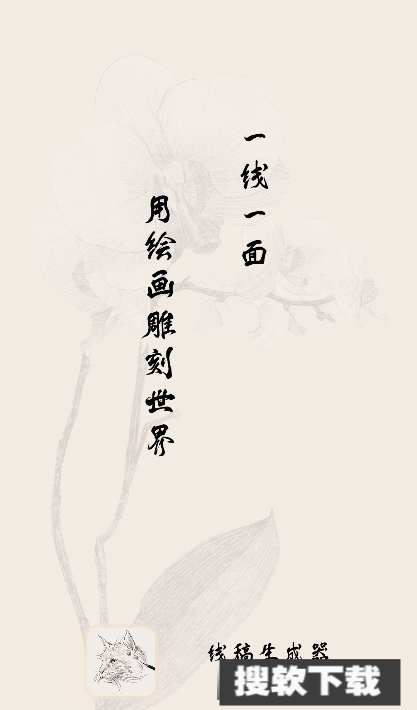 一线一面
用绘画雕刻世界
线稿生成器
搜软下载